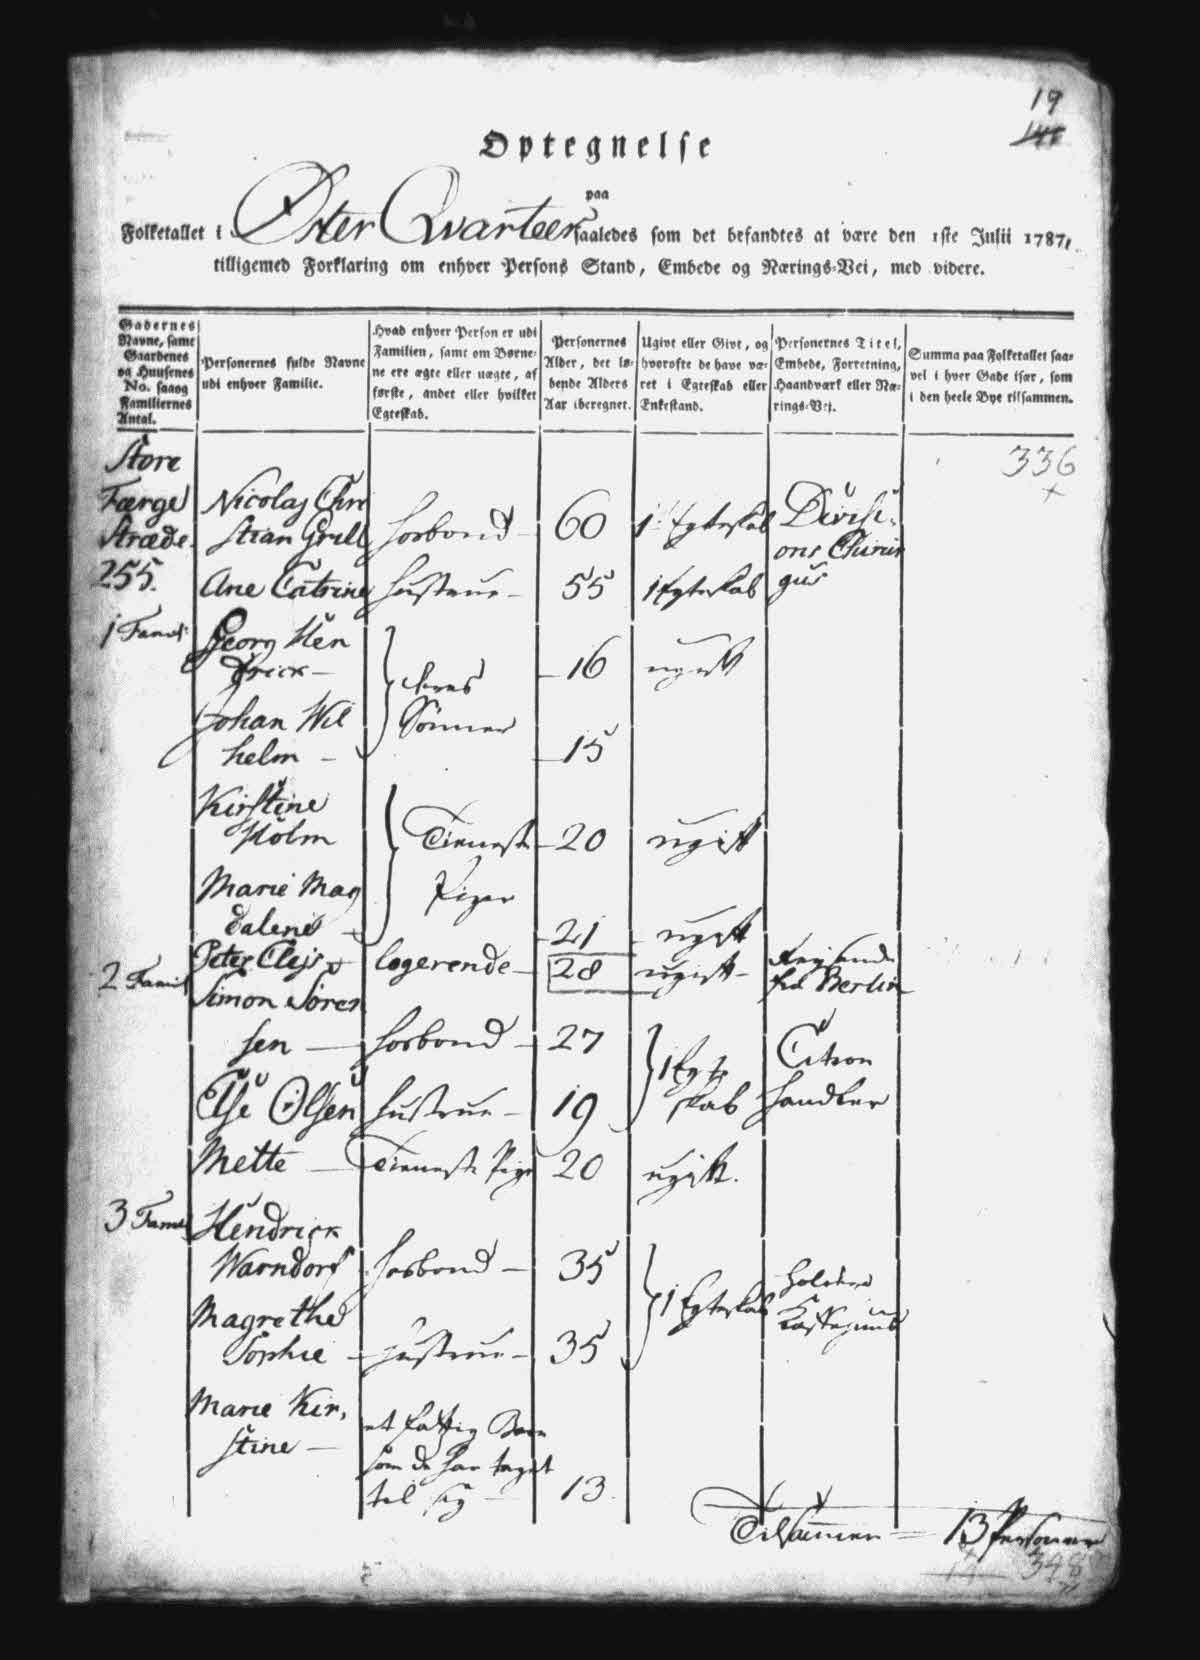 19
Optegnelse
paa
Folketallet i Øster Qvarteer saaledes som det befandtes at være den 1ste Julii 1787,
tilligemed Forklaring om enhver Persons Stand, Embede og Nærings-Vei, med videre.
Gadernes
Navne, samt
Gaardenes
og Huusenes
No. saaog
Familiernes
Antal.
Personernes fulde Navne
udi enhver Familie.
Hvad enhver Person er udi
Familien, samt om Børne-
ne ere ægte eller uægte, af
første, andet eller hvilket
Egteskab.
Personernes
Alder, det lø-
bende Alders
Aar iberegnet.
Ugivt eller Givt, og
hvorofte de have væ-
ret i Egteskab eller
Enkestand.
Personernes Titel,
Embede, Forretning,
Haandværk eller Næ-
rings-Vej.
Summa paa Folketallet saa-
vel i hver Gade især, som
i den heele Bye tilsammen.
Store
336
Færge Nicolaj Chri
Stræde. stian Grill Hosbond 60 1 Egteskab Divisi-
ons Chirur
255. Ane Catrine Hustrue 55 1 Egteskab gus
1 Famil: Georg Hen
drick 16 ugift
deres
Johan Wil Sønner
helm 15
Kirstine
Holm Tieneste 20 ugift
Marie Mag Piger
dalene 21 ugift
Peter Clejs logerende 28 ugift
fra Berlin
2 Famil Simon Søren
sen Hosbond 27 1 Egte Citron
Else Olsen Hustrue 19 skab Handler
Mette Tieneste Pige 20 ugift.
3 Famil Hendrick
Warndorf Hosbond 35 1 Egteskab
Magrethe
Sophie Hustrue 35
Marie Kir, et fattig Barn
stine som de har taget
til sig 13
Tilsammen = 13 Personer
348